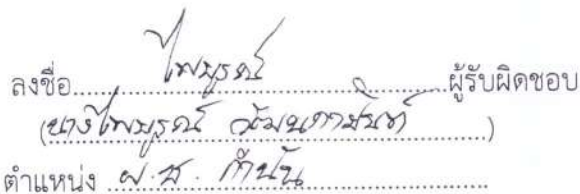 ลงชื่อ ไพบูรณ์ ผู้รับผิดชอบ
(นางไพบูรณ์ )
ตำแหน่ง ผ.ช. กำนัน